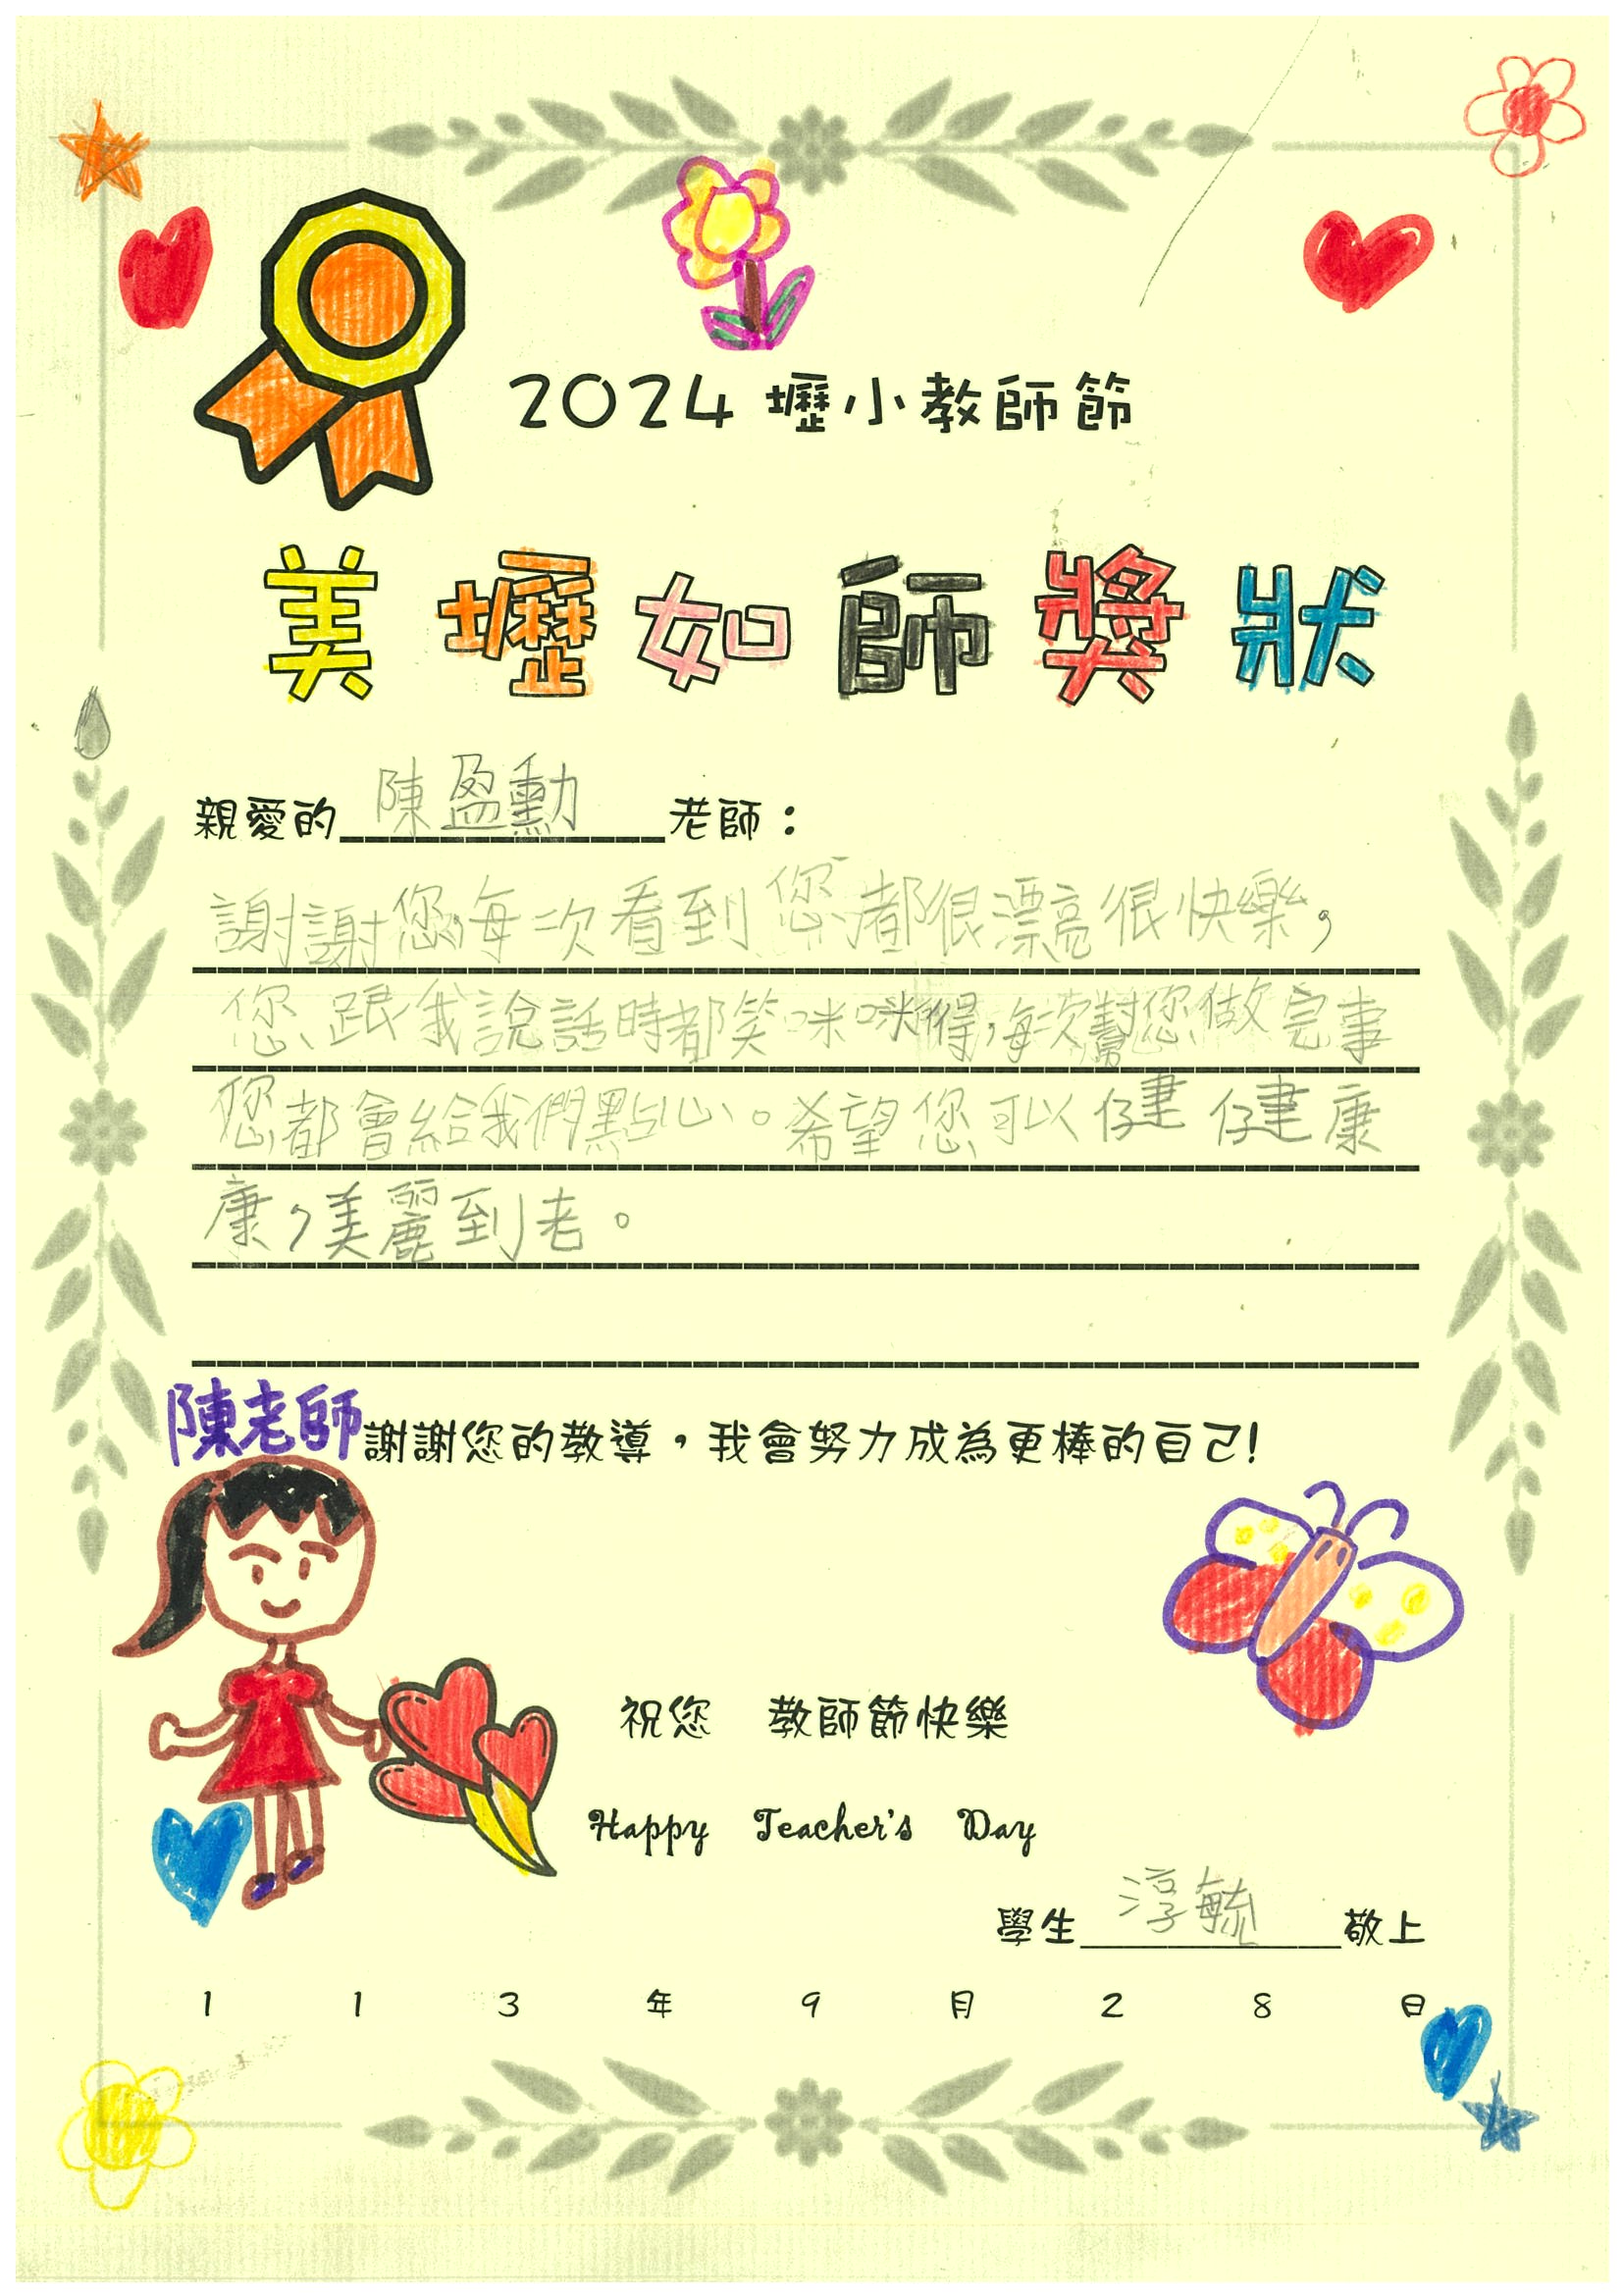 2024 壢小教師節
美壢如師獎狀
親愛的陳盈勳老師：
謝謝您,每次看到您,都很漂亮很快樂,
您跟我說話時都笑咪咪得,每次幫您做完事
您都會給我們點心。希望您可以健健康
康,美麗到老。
陳老師謝謝您的教導，我會努力成為更棒的自己!
祝您 教師節快樂
Happy Teacher's Day
學生淳毓敬上
1 1 3 年 9 月 2 8 日